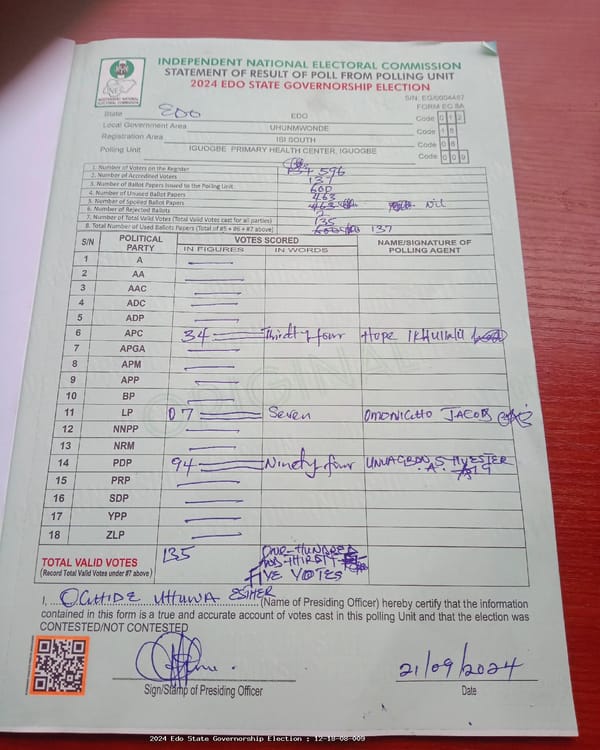 INDEPENDENT NATIONAL ELECTORAL COMMISSION
STATEMENT OF RESULT OF POLL FROM POLLING UNIT
2024 EDO STATE GOVERNORSHIP ELECTION
S/N: EG/0004497
FORM EC 8A
State EDO EDO Code 0 1 2
Local Government Area UHUNMWONDE Code 1 8
Registration Area ISI SOUTH Code 0 8
Polling Unit IGUOGBE PRIMARY HEALTH CENTER, IGUOGBE Code 0 0 9
1. Number of Voters on the Register 596
2. Number of Accredited Voters 137
3. Number of Ballot Papers Issued to the Polling Unit 600
4. Number of Unused Ballot Papers 463
5. Number of Spoiled Ballot Papers Nil
6. Number of Rejected Ballots 2
7. Number of Total Valid Votes (Total Valid Votes cast for all parties) 135
8. Total Number of Used Ballots Papers (Total of #5 + #6 + #7 above) 137
S/N POLITICAL PARTY VOTES SCORED NAME/SIGNATURE OF POLLING AGENT
IN FIGURES IN WORDS
1 A
2 AA
3 AAC
4 ADC
5 ADP
6 APC 34 Thirdty four Hope
7 APGA
8 APM
9 APP
10 BP
11 LP 07 Seven JACOB
12 NNPP
13 NRM
14 PDP 94 Ninety four
15 PRP
16 SDP
17 YPP
18 ZLP
TOTAL VALID VOTES 135 ONE-HUNDRED AND-THIRDTY FIVE VOTES
(Record Total Valid Votes under #7 above)
I, UHUNWA ESTHER (Name of Presiding Officer) hereby certify that the information
contained in this form is a true and accurate account of votes cast in this polling Unit and that the election was
CONTESTED/NOT CONTESTED
21/09/2024
Sign/Stamp of Presiding Officer Date
2024 Edo State Governorship Election : 12-18-08-009